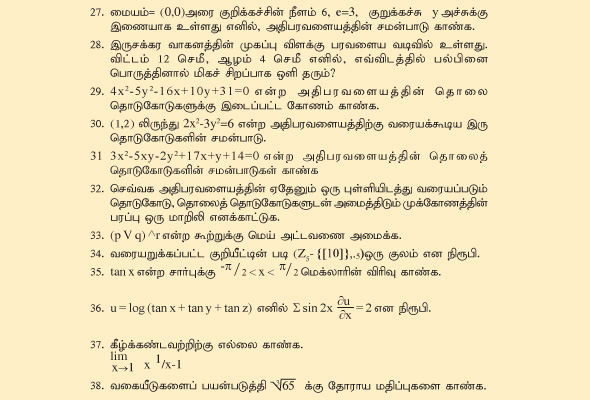 27. மையம்= (0,0)அரை குறிக்கச்சின் நீளம் 6, e=3, குறுக்கச்சு y அச்சுக்கு
இணையாக உள்ளது எனில், அதிபரவளையத்தின் சமன்பாடு காண்க.
28. இருசக்கர வாகனத்தின் முகப்பு விளக்கு பரவளைய வடிவில் உள்ளது.
விட்டம் 12 செமீ, ஆழம் 4 செமீ எனில், எவ்விடத்தில் பல்பினை
பொருத்தினால் மிகச் சிறப்பாக ஒளி தரும்?
29. 4x²-5y²-16x+10y+31=0 என்ற அதிபரவளையத்தின் தொலை
தொடுகோடுகளுக்கு இடைப்பட்ட கோணம் காண்க.
30. (1,2) லிருந்து 2x²-3y²=6 என்ற அதிபரவளையத்திற்கு வரையக்கூடிய இரு
தொடுகோடுகளின் சமன்பாடு.
31 3x²-5xy-2y²+17x+y+14=0 என்ற அதிபரவளையத்தின் தொலைத்
தொடுகோடுகளின் சமன்பாடுகள் காண்க
32. செவ்வக அதிபரவளையத்தின் ஏதேனும் ஒரு புள்ளியிடத்து வரையப்படும்
தொடுகோடு, தொலைத் தொடுகோடுகளுடன் அமைத்திடும் முக்கோணத்தின்
பரப்பு ஒரு மாறிலி எனக்காட்டுக.
33. (p V q) ^r என்ற கூற்றுக்கு மெய் அட்டவணை அமைக்க.
34. வரையறுக்கப்பட்ட குறியீட்டின் படி (Z₅- {[10]},.₅)ஒரு குலம் என நிரூபி.
35. tan x என்ற சார்புக்கு -π/2 < x < π/2 மெக்லாரின் விரிவு காண்க.
36. u = log (tan x + tan y + tan z) எனில் Σ sin 2x ∂u/∂x = 2 என நிரூபி.
37. கீழ்க்கண்டவற்றிற்கு எல்லை காண்க.
lim
x→1 x 1/x-1
38. வகையீடுகளைப் பயன்படுத்தி ∛65 க்கு தோராய மதிப்புகளை காண்க.